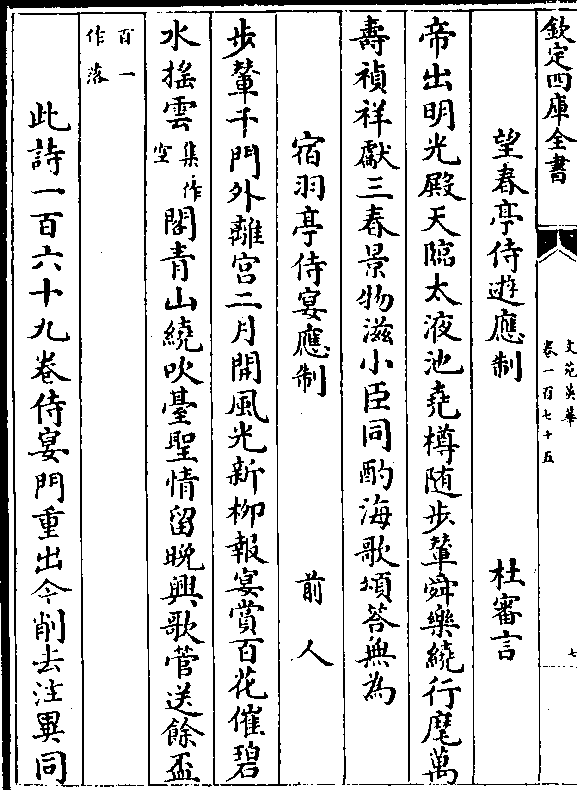 欽定四庫全書
文苑英華
卷一百七十五
七
望春亭侍遊應制 杜審言
帝出明光殿天臨太液池堯樽隨步輦舜樂繞行麾萬
壽禎祥獻三春景物滋小臣同酌海歌頌答無為
宿羽亭侍宴應制 前人
步輦千門外離宮二月開風光新柳報宴賞百花催碧
水搖雲集作空閣青山繞吹臺聖情留晚興歌管送餘盃
百一作落
此詩一百六十九卷侍宴門重出今削去注異同